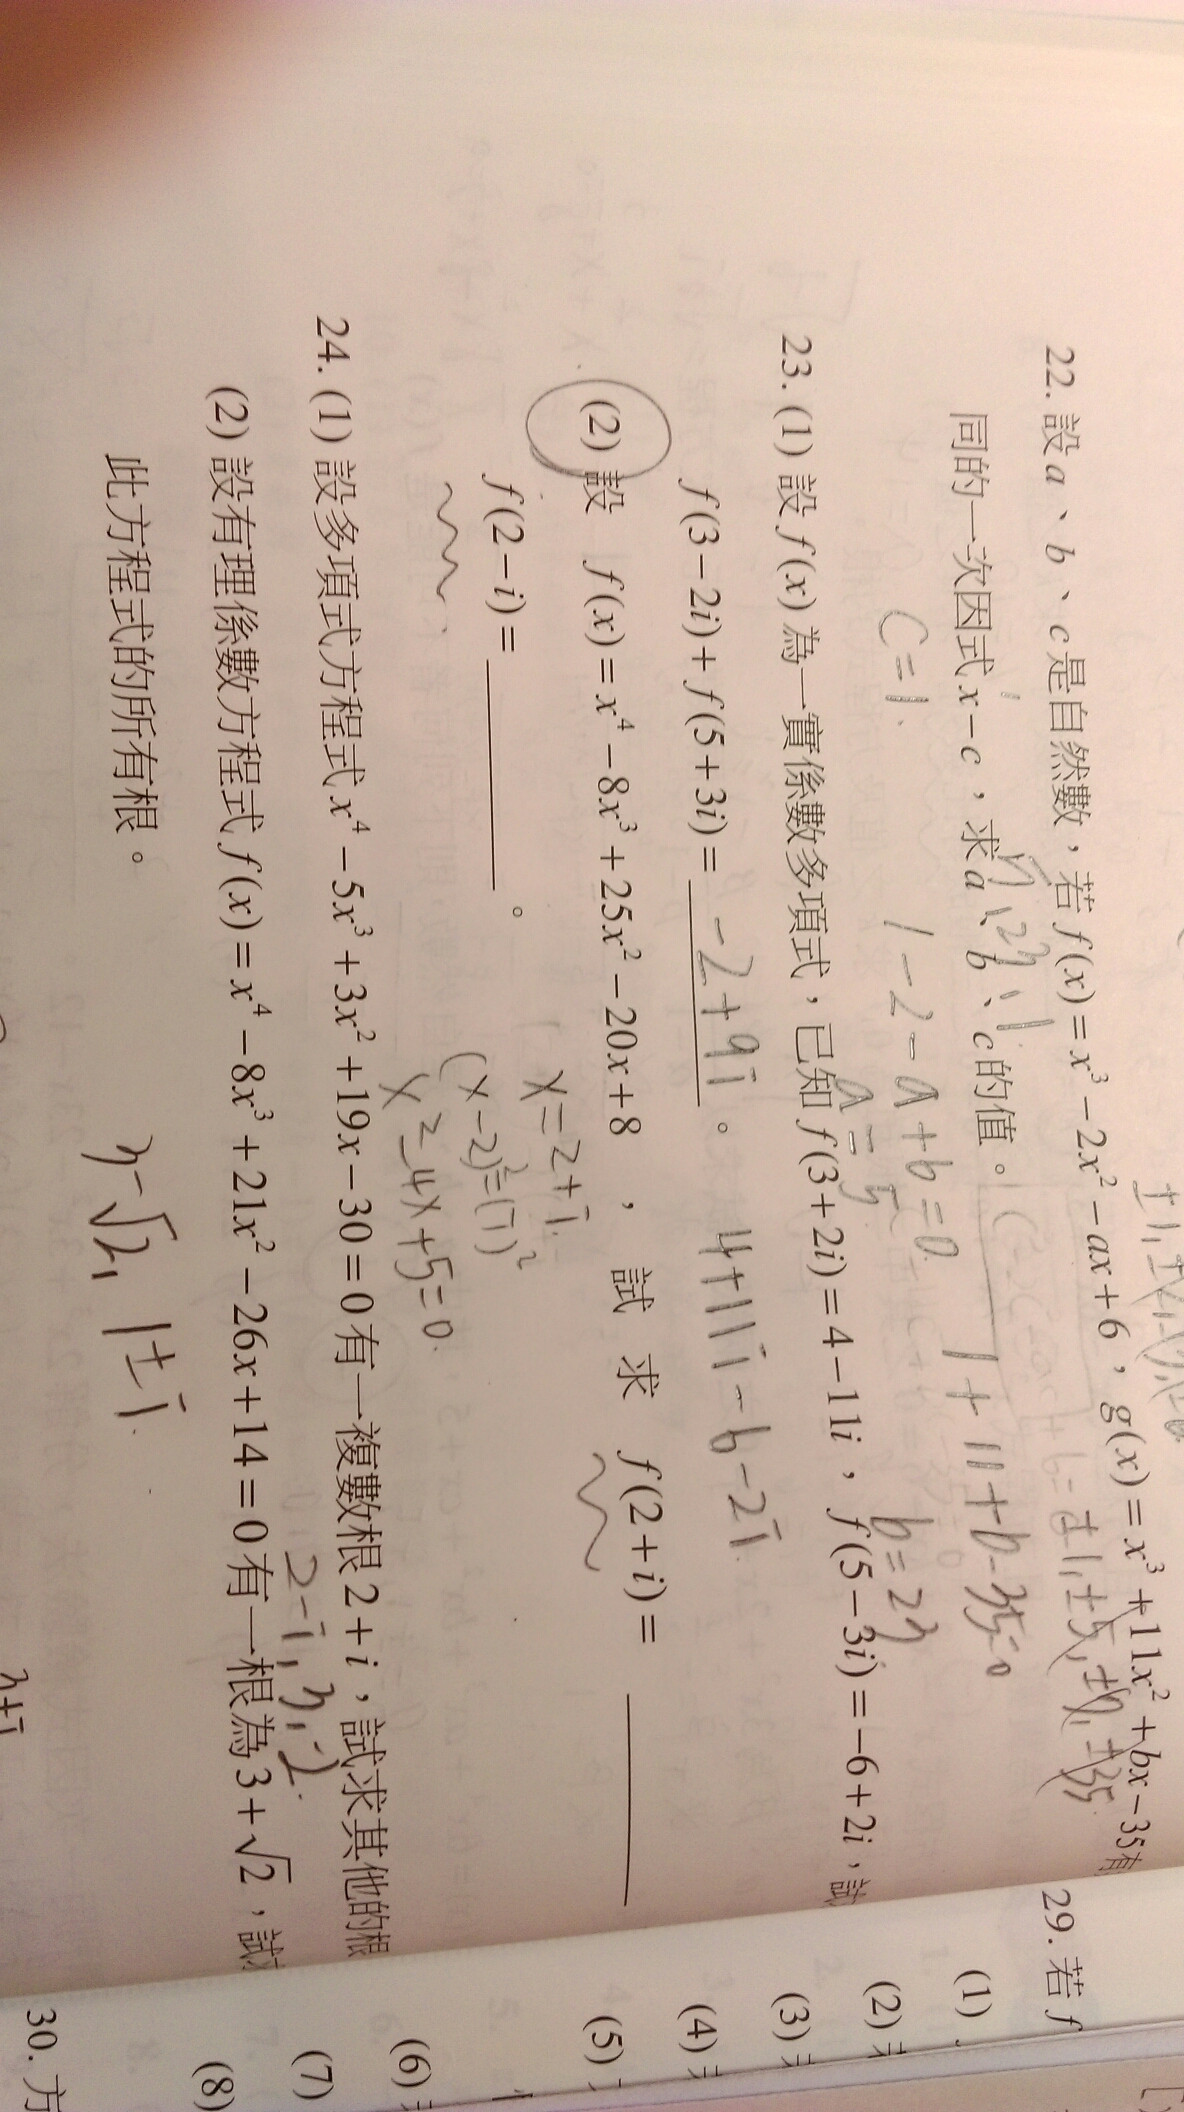 22. 設a、b、c是自然數，若f(x)=x³-2x²-ax+6，g(x)=x³+11x²+bx-35有
同的一次因式x-c，求a、b、c的值。
C=1.
1-2-a+b=0
1+11+b-35=0
b=23
23. (1) 設f(x)為一實係數多項式，已知f(3+2i)=4-11i，f(5-3i)=-6+2i，試
f(3-2i)+f(5+3i)= -2+9i 。
4+11i-6-2i
(2) 設 f(x)=x⁴-8x³+25x²-20x+8 ， 試 求 f(2+i)=
f(2-i)= 。
x=2+i.
(x-2)²=(i)²
x²-4x+5=0.
24. (1) 設多項式方程式x⁴-5x³+3x²+19x-30=0有一複數根2+i，試求其他的根
2-i, 3, -2.
(2) 設有理係數方程式f(x)=x⁴-8x³+21x²-26x+14=0有一根為3+√2，試
此方程式的所有根。
3-√2, 1±i.
29. 若f
(1)
(2)
(3)
(4)
(5)
(6)
(7)
(8)
30. 方